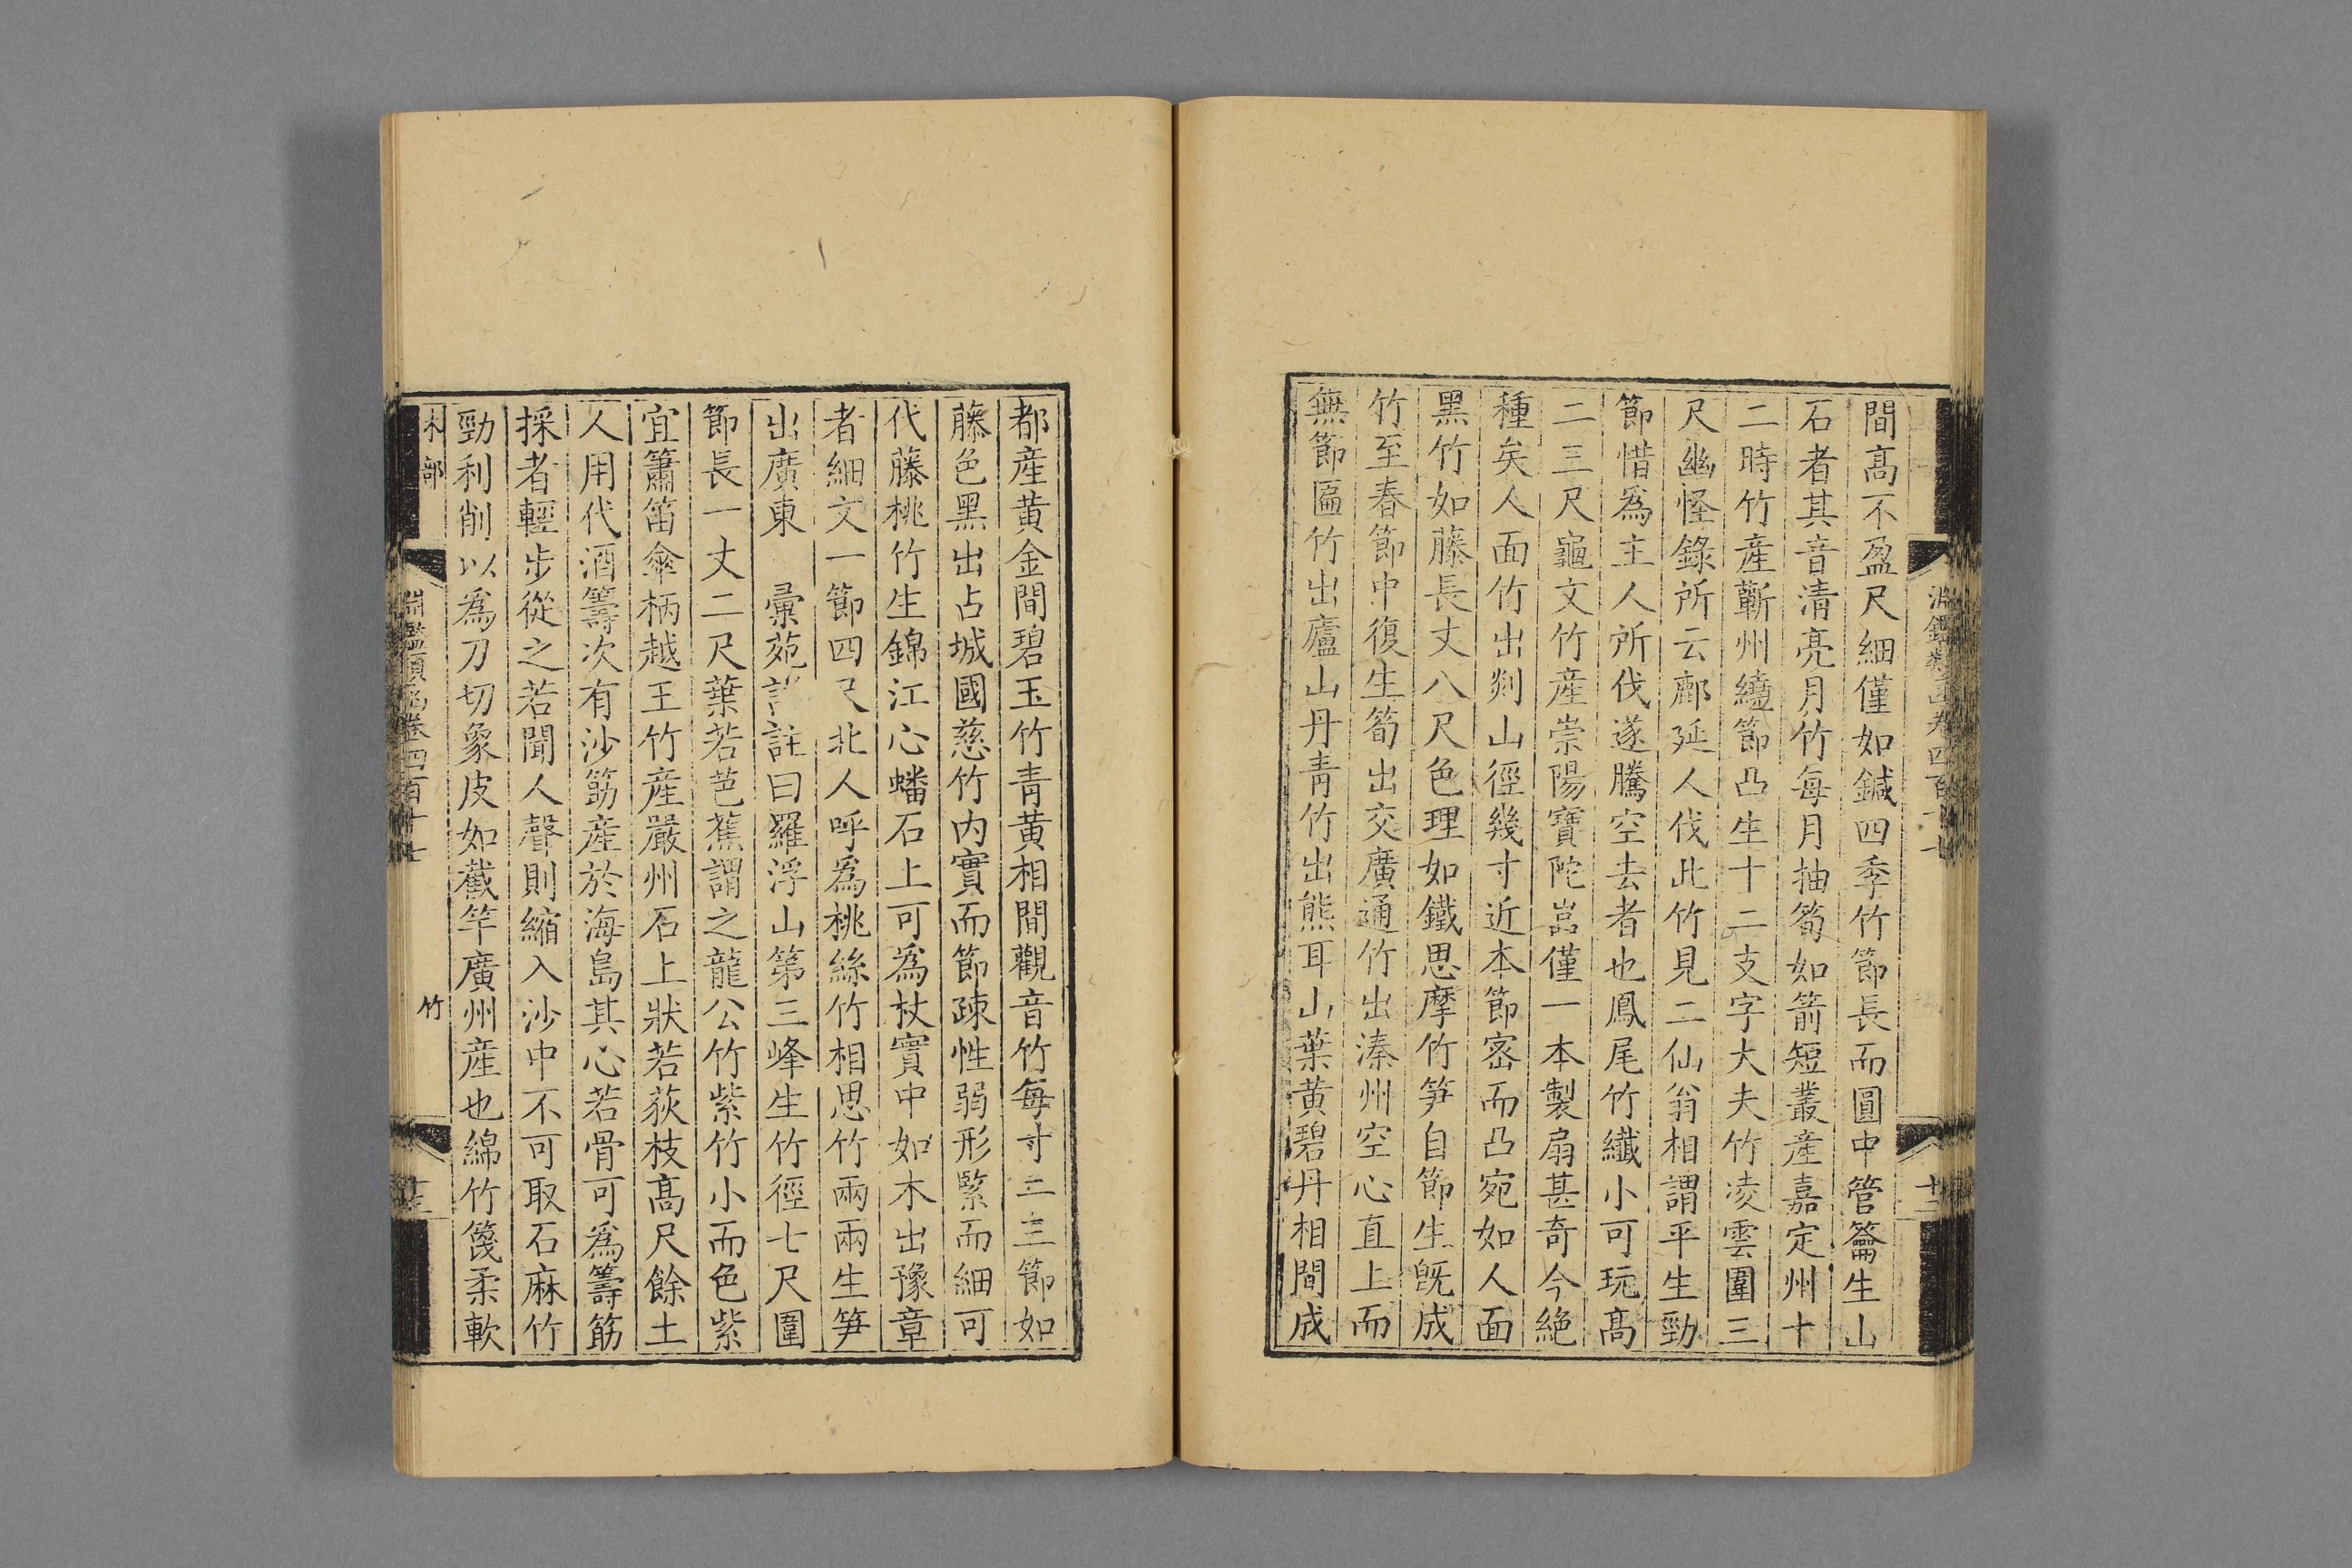 間高不盈尺細僅如鍼四季竹節長而圓中管籥生山
石者其音清亮月竹每月抽筍如箭短叢産嘉定州十
二時竹産蘄州繞節凸生十二支字大夫竹凌雲圍三
尺幽怪錄所云鄜延人伐此竹見二仙翁相謂平生勁
節惜爲主人所伐遂騰空去者也鳳尾竹纖小可玩高
二三尺龜文竹産崇陽寶陀岩僅一本製扇甚奇今絶
種矣人面竹出剡山徑幾寸近本節宻而凸宛如人面
黑竹如藤長丈八尺色理如鐵思摩竹笋自節生旣成
竹至春節中復生筍出交廣通竹出溱州空心直上而
無節匾竹出廬山丹青竹出熊耳山葉黄碧丹相間成
都産黄金間碧玉竹青黄相間觀音竹每寸二三節如
藤色黑出占城國慈竹内實而節疎性弱形緊而細可
代藤桃竹生錦江心蟠石上可爲杖實中如木出豫章
者細文一節四尺北人呼爲桃絲竹相思竹兩兩生笋
出廣東 彙苑詳註曰羅浮山第三峰生竹徑七尺圍
節長一丈二尺葉若芭蕉謂之龍公竹紫竹小而色紫
宜簫笛傘柄越王竹産嚴州石上狀若荻枝高尺餘土
人用代酒籌次有沙筯産於海島其心若骨可爲籌筯
採者輕步從之若聞人聲則縮入沙中不可取石麻竹
勁利削以爲刀切象皮如截竿廣州産也綿竹篾柔軟
木部 淵鑑類函卷四百十七 竹 十三